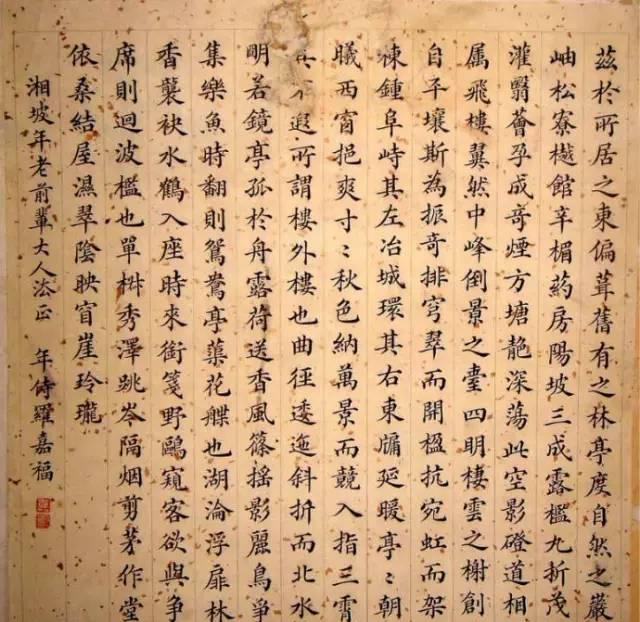 茲於所居之東偏葺舊有之林亭度自然之巖
岫松寮樾館辛楣葯房陽坡三成露檻九折茂
灌翳薈孕成奇煙方塘靘深蕩此空影磴道相
属飛樓翼然中峰倒景之臺四明棲雲之榭創
自平壤斯為振奇排穹翠而開楹抗宛虹而架
棟鍾阜峙其左冶城環其右東牖延暖亭〻朝
曦西窗挹爽寸〻秋色納萬景而競入指三霄
不遐所謂樓外樓也曲徑逶迤斜折而北水
明若鏡亭孤於舟露荷送香風篠摇影麗鳥爭
集樂魚時翻則鴛鴦亭蕖花艓也湖淪浮扉林
香襲袂水鶴入座時來銜箋野鷗窺客欲與争
席則迴波檻也單椒秀澤跳岑隔烟剪茅作堂
依桑結屋濕翠陰映窗崖玲瓏
湘坡年老前輩大人法正 年侍羅嘉福